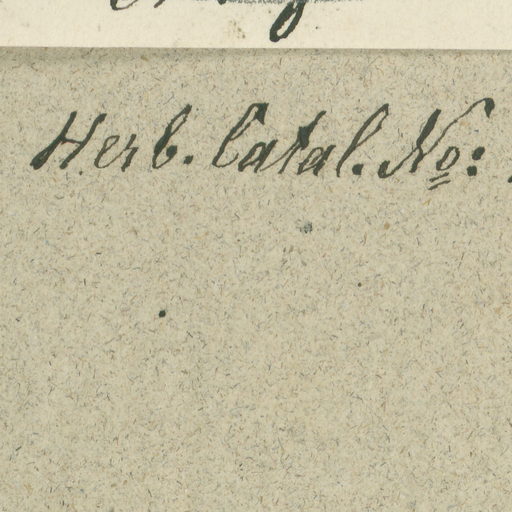 Herb. Catal. No: